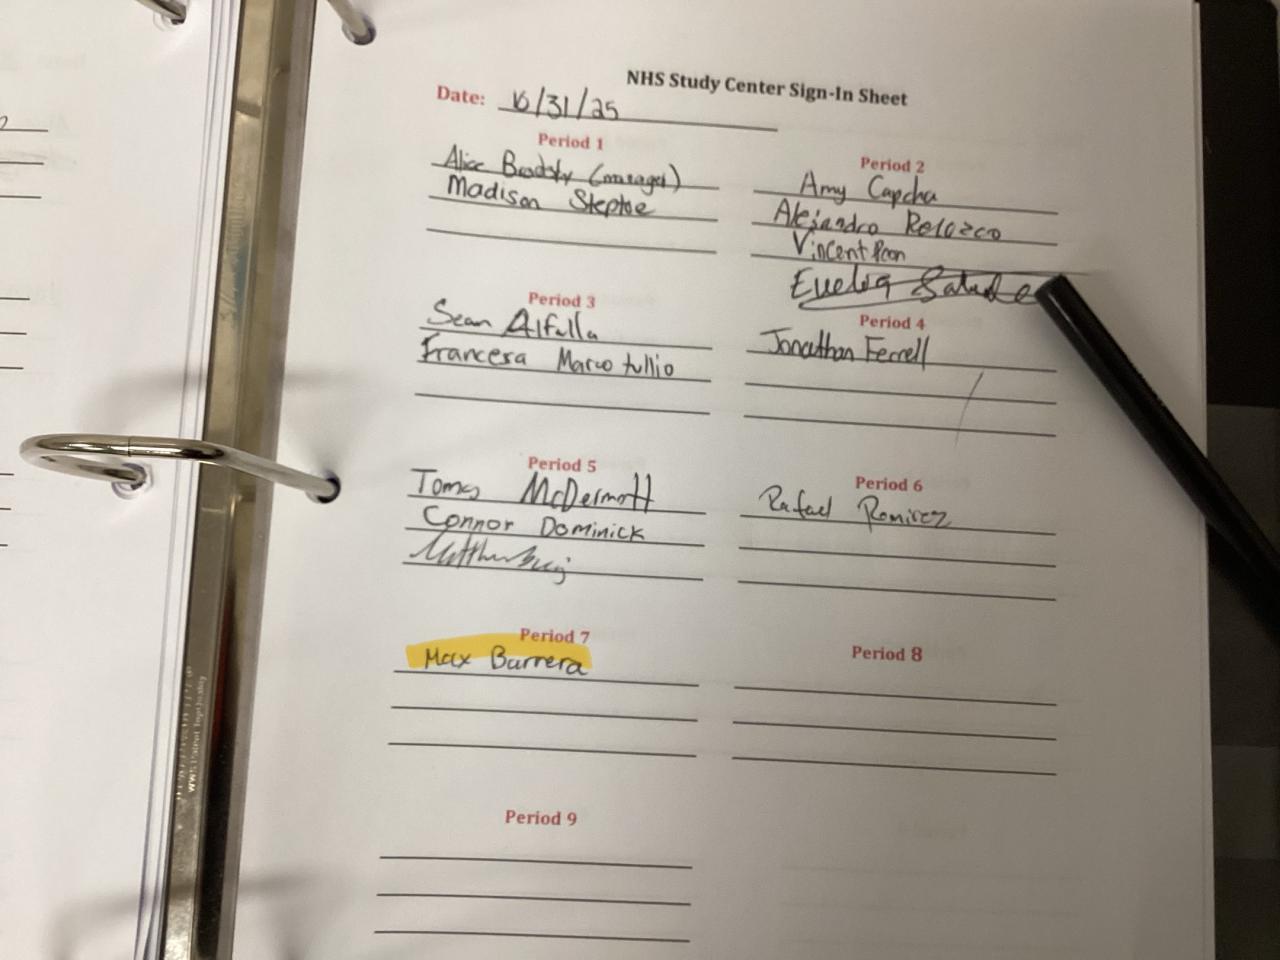 NHS Study Center Sign-In Sheet
Date: 10/31/25
Period 1
Alice Brodsky (manager)
Madison Steptoe
Period 2
Amy Capcha
Alejandro
Vincent
Evelia
Period 3
Sean Alfulla
Francesa Marcotullio
Period 4
Jonathan Ferrell
Period 5
Tomas McDermott
Connor Dominick
Period 6
Rafael Ramirez
Period 7
Max Barrera
Period 8
Period 9